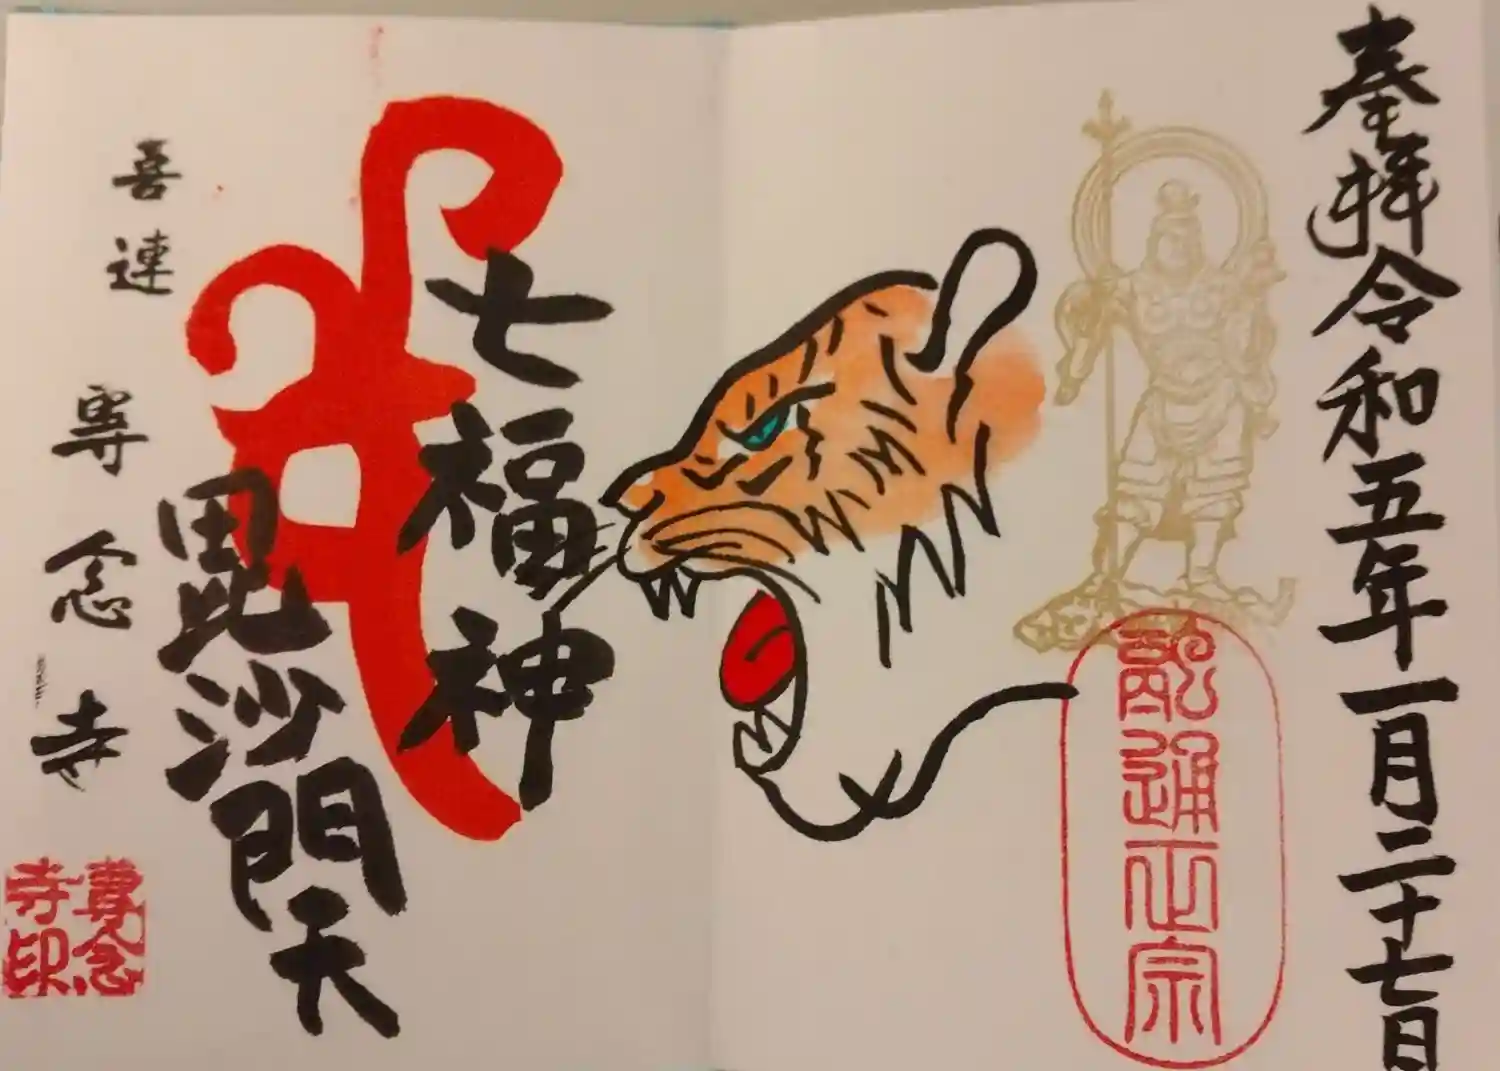 奉拝令和五年一月二十七日
融通正宗
七福神
毘沙門天
喜連
専念寺
専念
寺印